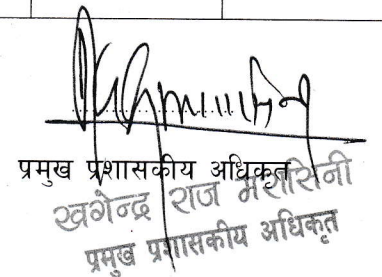 प्रमुख प्रशासकीय अधिकृत
खगेन्द्र राज मरासिनी
प्रमुख प्रशासकीय अधिकृत